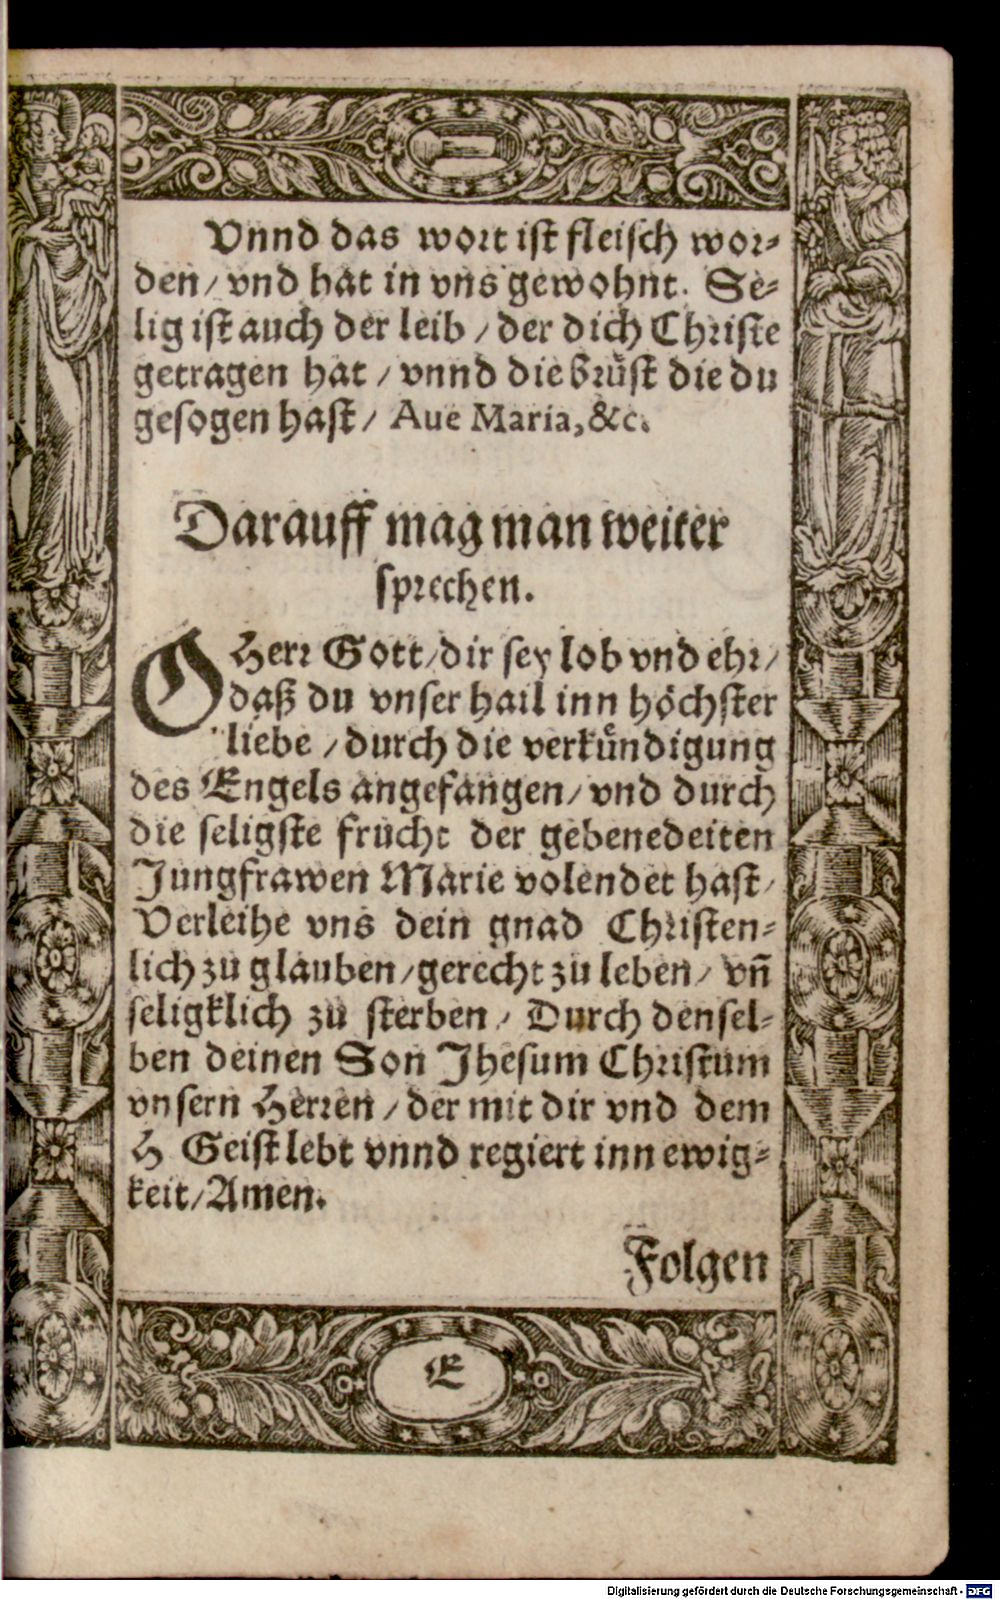 Vnnd das wort ist fleisch wor⸗
den/ vnd hat in vns gewohnt. Se⸗
lig ist auch der leib / der dich Christe
getragen hat / vnnd die brüst die du
gesogen hast/ Aue Maria, &c.
Darauff mag man weiter
sprechen.
O Herr Gott/ dir sey lob vnd ehr/
daß du vnser hail inn höchster
liebe / durch die verkündigung
des Engels angefangen/ vnd durch
die seligste frucht der gebenedeiten
Jungfrawen Marie volendet hast/
Verleihe vns dein gnad Christen⸗
lich zu glauben/ gerecht zu leben/ vñ
seligklich zu sterben / Durch densel⸗
ben deinen Son Jhesum Christum
vnsern Herren / der mit dir vnd dem
H Geist lebt vnnd regiert inn ewig⸗
keit/ Amen.
Folgen
E
Digitalisierung gefördert durch die Deutsche Forschungsgemeinschaft - DFG